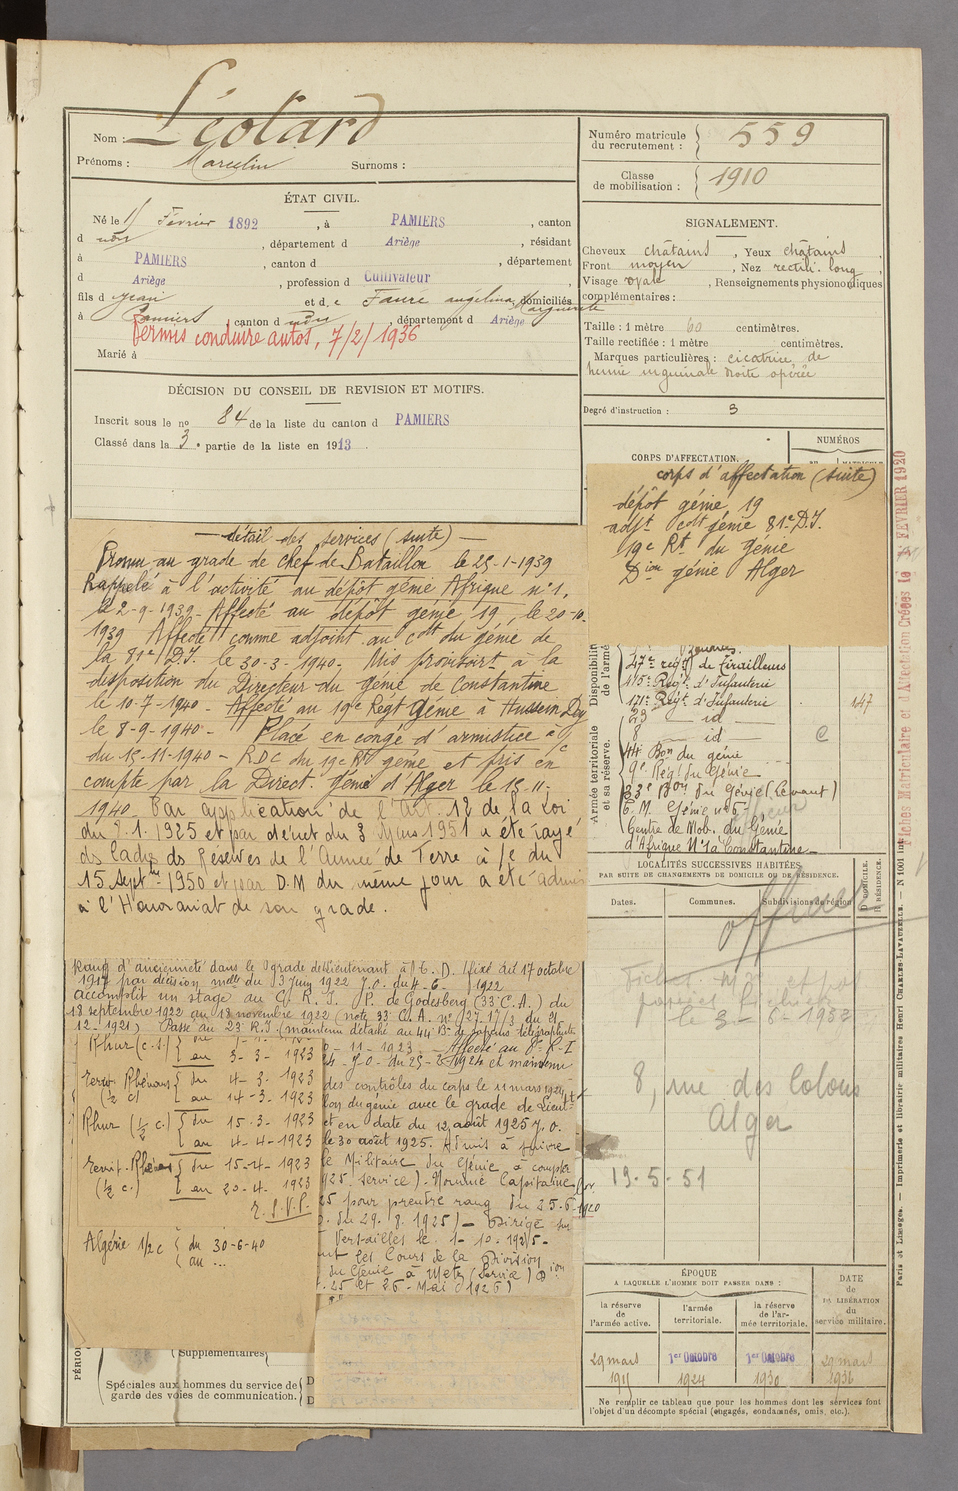 Nom : Léotard
Prénoms : Marcelin Surnoms :
ÉTAT CIVIL.
Né le 15 Février 1892, à PAMIERS, canton
d udit, département d Ariège, résidant
à PAMIERS, canton d, département
d Ariège, profession d Cultivateur,
fils d Jean et de Faure Angelina Marguerite domiciliés
à Pamiers, canton d udit, département d Ariège
Permis conduire autos, 7/2/1936
Marié à
DÉCISION DU CONSEIL DE REVISION ET MOTIFS.
Inscrit sous le no 84 de la liste du canton d PAMIERS
Classé dans la 3e partie de la liste en 1913.
— détail des services (suite) —
Promu au grade de chef de Bataillon le 25-1-1939
Rappelé à l'activité au dépôt génie Afrique n°1.
le 2-9-1939- Affecté au dépôt génie 19, le 20-10-
1939 Affecté comme adjoint au cdt du génie de
la 81e D.I. le 30-3-1940- Mis provisoirt à la
disposition du Directeur du génie de Constantine
le 10-7-1940- Affecté au 19e Régt Génie à Hussein Dey
le 8-9-1940- Placé en congé d'armistice a/c
du 15-11-1940- RDC du 19e Rt génie et pris en
compte par la Direct. génie d'Alger le 15-11-
1940. Par application de l'art. 12 de la Loi
du 8.1.1925 et par décret du 3 Mars 1951 a été rayé
des Cadres des Réserves de l'Armée de Terre à/c du
15 Septbre 1950 et par D.M du même jour a été admis
à l'Honorariat de son grade.
Rang d'ancienneté dans le grade de S/Lieutenant à T.D. fixé au 17 octobre
1917 par décision melle du 3 juin 1922 J.O. du 4-6-1922
accomplit un stage au C.R.I.P. de Godesberg (33e C.A.) du
18 septembre 1922 au 18 novembre 1922 (note 33e C.A. n° 27-17/3 du 21-
12-1921) Passé au 23e R.I. (maintenu détaché au 44e Bon de sapeurs télégraphistes
0-11-1923- Affecté au 8e R.I
J.O. du 25-2-1924 et maintenu
des contrôles du corps le 11 mars 1924
lon du génie avec le grade de Lieutt
et en date du 12 août 1925 J.O.
le 30 août 1925. Admis à suivre
le Militaire du Génie à compter
925 service). Nommé Capitaine
25 pour prendre rang du 25-6-1920
du 29.8.1925) - Dirigé sur
Versailles le 1-10-1925-
nt les Cours de la Division
du Génie à Metz (Service)
25 et 26-Mai 1926)
Rhur (c.s.) { du
au 3-3-1923
Territ Rhénans { du 4-3-1923
(½ c) au 14-3-1923
Rhur (½ c.) { du 15-3-1923
au 4-4-1923
Territ-Rhénans { du 15-4-1923
(½ c.) au 20-4-1923
T.S.V.P.
Algérie 1/2 c { du 30-6-40
au ...
PÉRIO
Supplémentaires
Spéciales aux hommes du service de
garde des voies de communication.
Numéro matricule
du recrutement : 559
Classe
de mobilisation : 1910
SIGNALEMENT.
Cheveux châtains, Yeux châtains,
Front moyen, Nez rectili. long,
Visage ovale, Renseignements physionomiques
complémentaires :
Taille : 1 mètre 60 centimètres.
Taille rectifiée : 1 mètre centimètres.
Marques particulières : cicatrice de
hernie inguinale droite opérée
Degré d'instruction : 3
CORPS D'AFFECTATION.
NUMÉROS
corps d'affectation (suite)
dépôt génie 19
adjt cdt génie 81e D.I.
19e Rt du Génie
Dion génie Alger
Disponibilité
de l'armée
Armée territoriale
et sa réserve.
47e régt de Tirailleurs
115e Régt. d'Infanterie
171e Régt. d'Infanterie 147
23 — id —
8 — id — C
44e Bon du génie
9e Régt du Génie
33e Bon du Génie (Levant)
C.M. Génie n°6
Centre de Mob. du Génie
d'Afrique N°1 à Constantine
LOCALITÉS SUCCESSIVES HABITÉES
PAR SUITE DE CHANGEMENTS DE DOMICILE OU DE RÉSIDENCE.
Dates. Communes. Subdivisions de région
D. DOMICILE.
R. RÉSIDENCE.
officier
le 3-6-1932
8, rue des Colons
Alger
19-5-51
ÉPOQUE
A LAQUELLE L'HOMME DOIT PASSER DANS :
la réserve
de l'armée active.
l'armée
territoriale.
la réserve
de l'ar-
mée territoriale.
DATE
de
LA LIBÉRATION
du
service militaire.
29 mars
1er Octobre
1924
1er Octobre
1930
29 mars
1936
Ne remplir ce tableau que pour les hommes dont les services font
l'objet d'un décompte spécial (engagés, condamnés, omis, etc.).
Fiches Matriculaire et d'Affectation Créées le 1er FÉVRIER 1920
Paris et Limoges. — Imprimerie et librairie militaires Henri CHARLES-LAVAUZELLE. — N 1001 int.